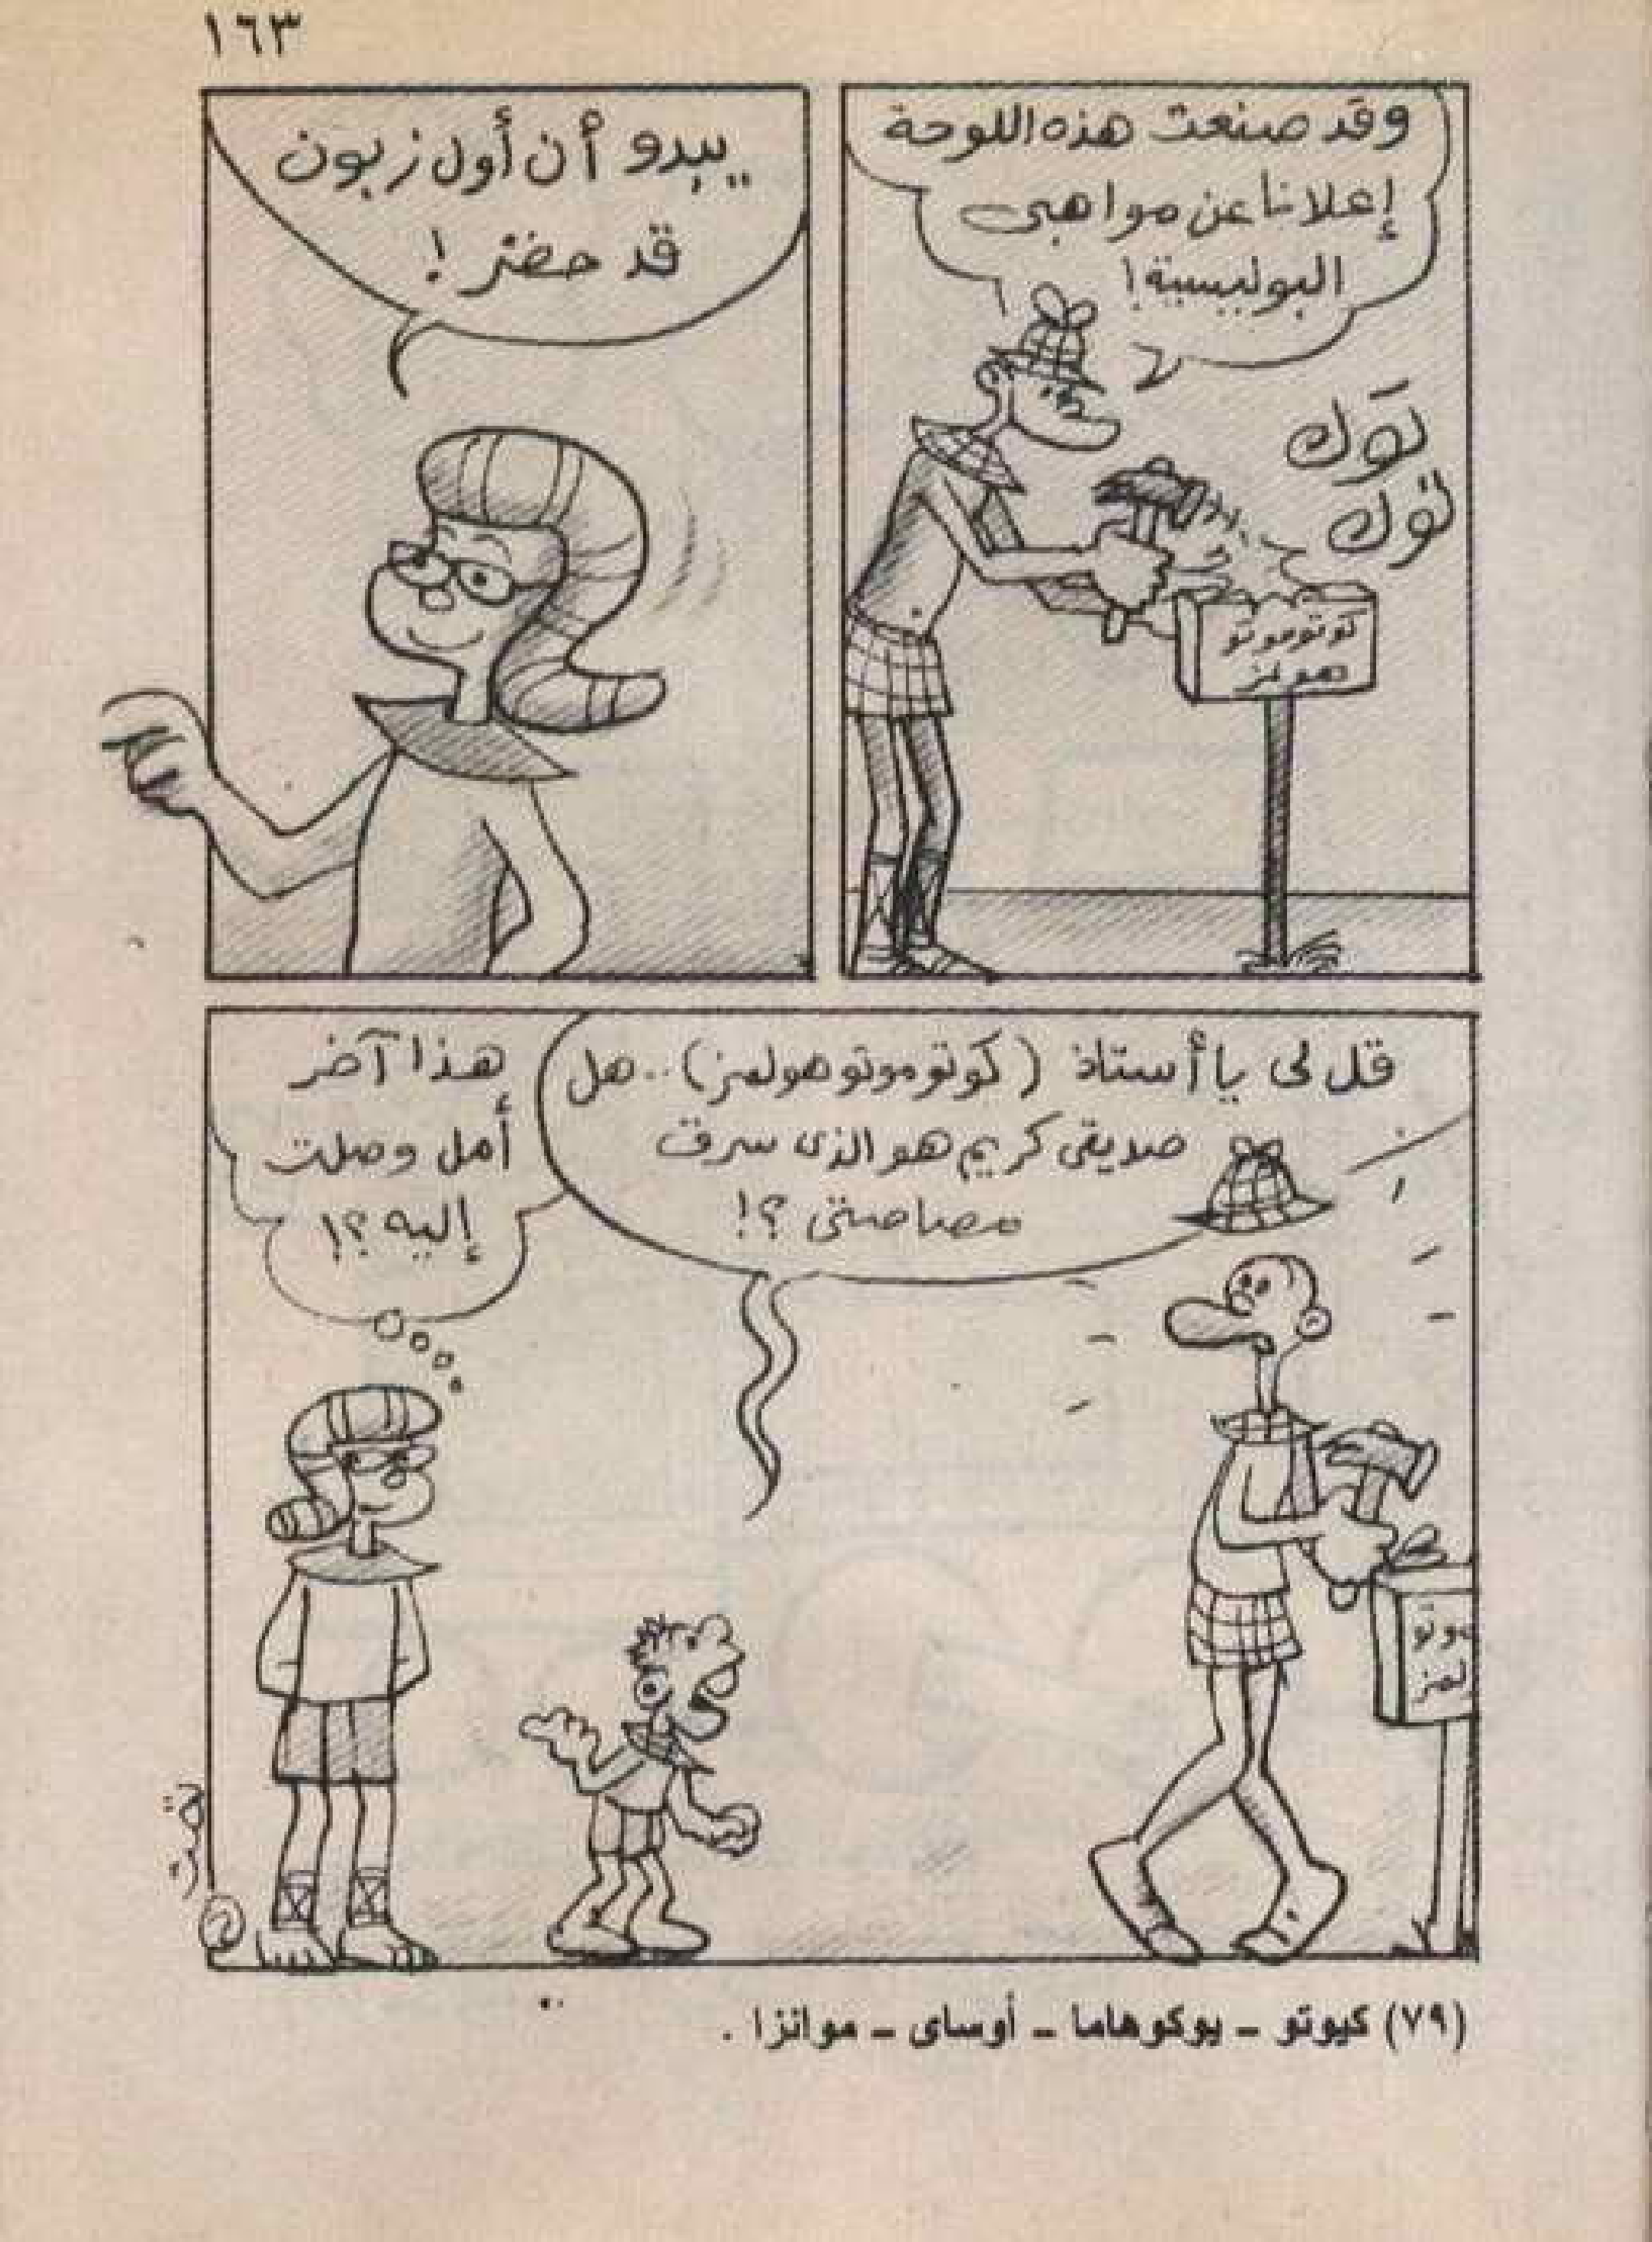 ١٦٣
وقد صنعت هذه اللوحة
إعلانا عن مواهبى
البوليسية!
توك
توك
كوتوموتو
هولمز
يبدو أن أول زبون
قد حضر!
قل لى يا أستاذ (كوتوموتو هولمز).. هل
صديقى كريم هو الذى سرق
مصاصتى ؟!
هذا آخر
أمل وصلت
إليه ؟!
موتو
لمز
تمت
(٧٩) كيوتو - يوكوهاما - أوساى - موانزا .